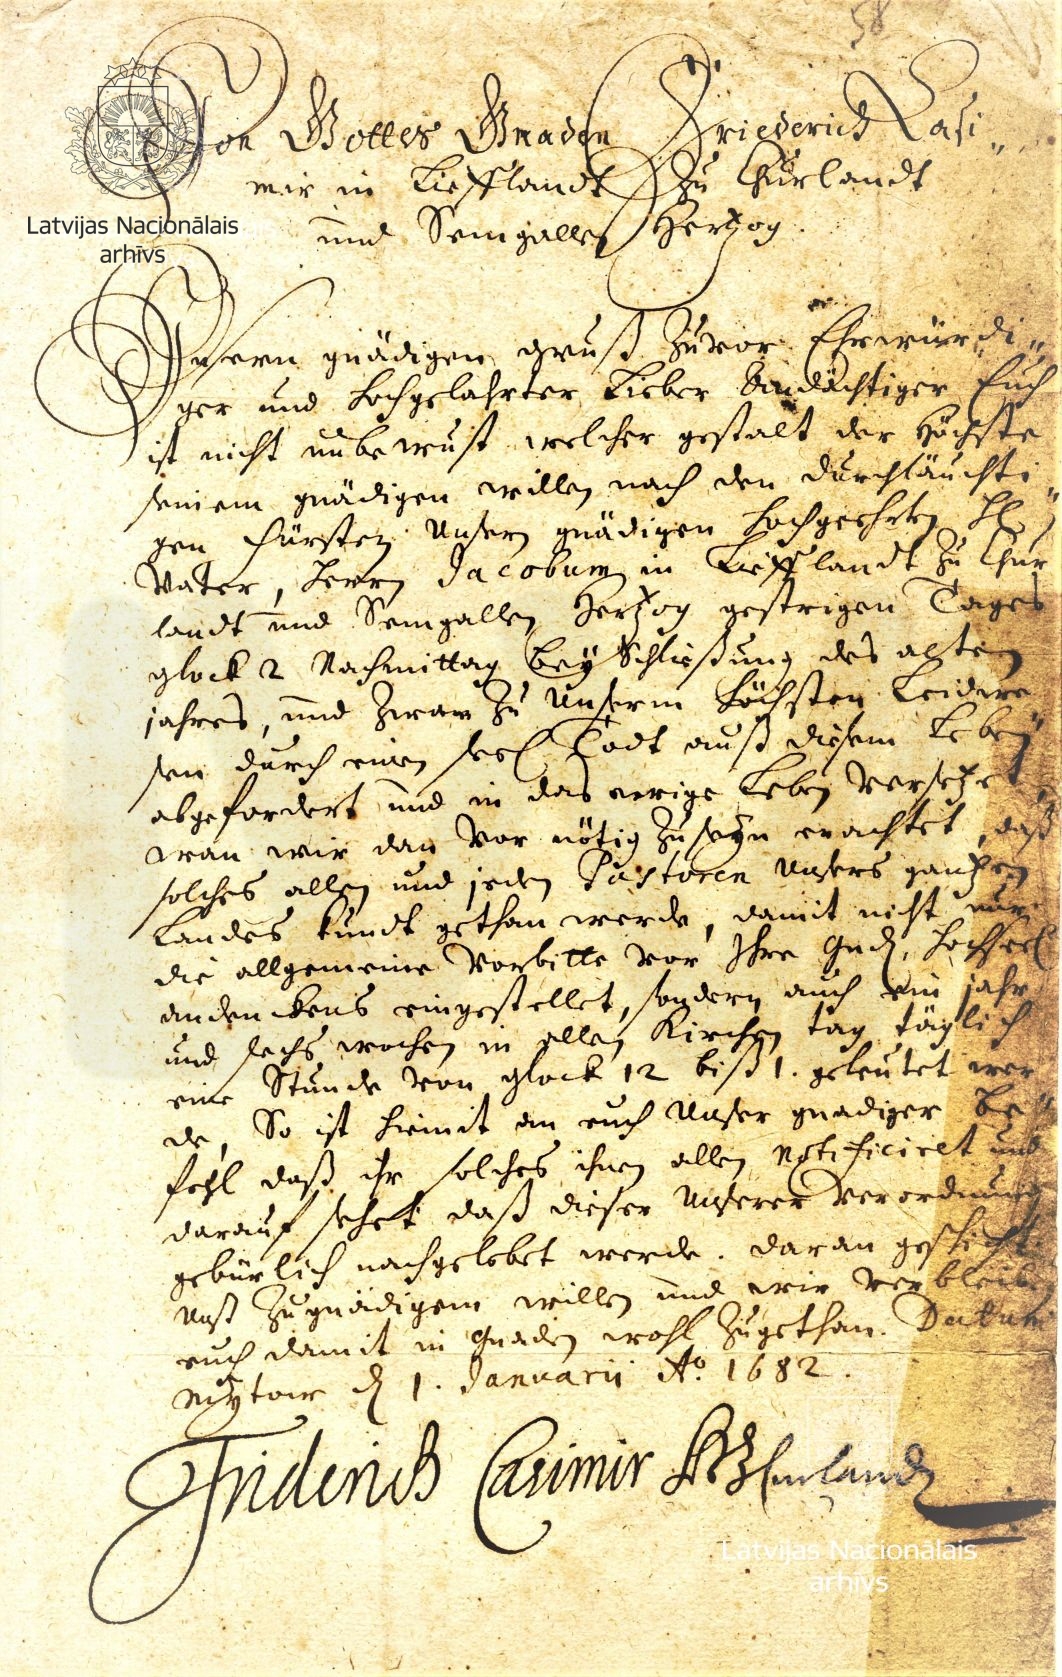 58
Von Gottes Gnaden Friederich Casi„
mir in Liefflandt Zu Churlandt
und Semgallen Hertzog.
Latvijas Nacionālais
arhīvs
Unsern gnädigen gruß Zuvor Ehrwürdi„
ger und hochgelahrter Lieber Andächtiger Euch
ist nicht unbewust welcher gestalt der Höchste
seinem gnädigen willen nach den durchläuchti„
gen Fürsten Unsern gnädigen hochgeehrten H.
Vater, Herrn Jacobum in Liefflandt Zu Chur„
landt und Semgallen Hertzog gestrigen Tages
glock 2 Nachmittag bey Schließung des alten
jahres, und Zwar Zu Unserm höchsten Leidwe
sen durch einen seel. Todt auß diesem Leben
abgefordert und in das ewige Leben versetzet,
wan wir dan vor nötig Zu seyn erachtet, daß
solches allen und jeden Pastoren Unsers gantzen
Landes kundt gethan werde, damit nicht nur
die allgemeine Vorbitte vor Ihre Gnd. hochseel.
andenckens eingestellet, sondern auch ein jahr
und sechs wochen in allen Kirchen tag täglich
eine Stunde von glock 12 biß 1. geleutet wer
de, So ist hiemit an euch Unser gnädiger Be„
fehl daß ihr solches ihnen allen notificiret und
darauf sehet daß dieser Unserer Verordnung
gebürlich nachgelebet werde. daran geschicht
Unß Zu gnädigem willen und wir verbleiben
euch damit in Gnaden wohl Zugethan. Datum
Mytow d. 1. Januarii Ao. 1682.
Friderich Casimir HZCurland
Latvijas Nacionālais
arhīvs